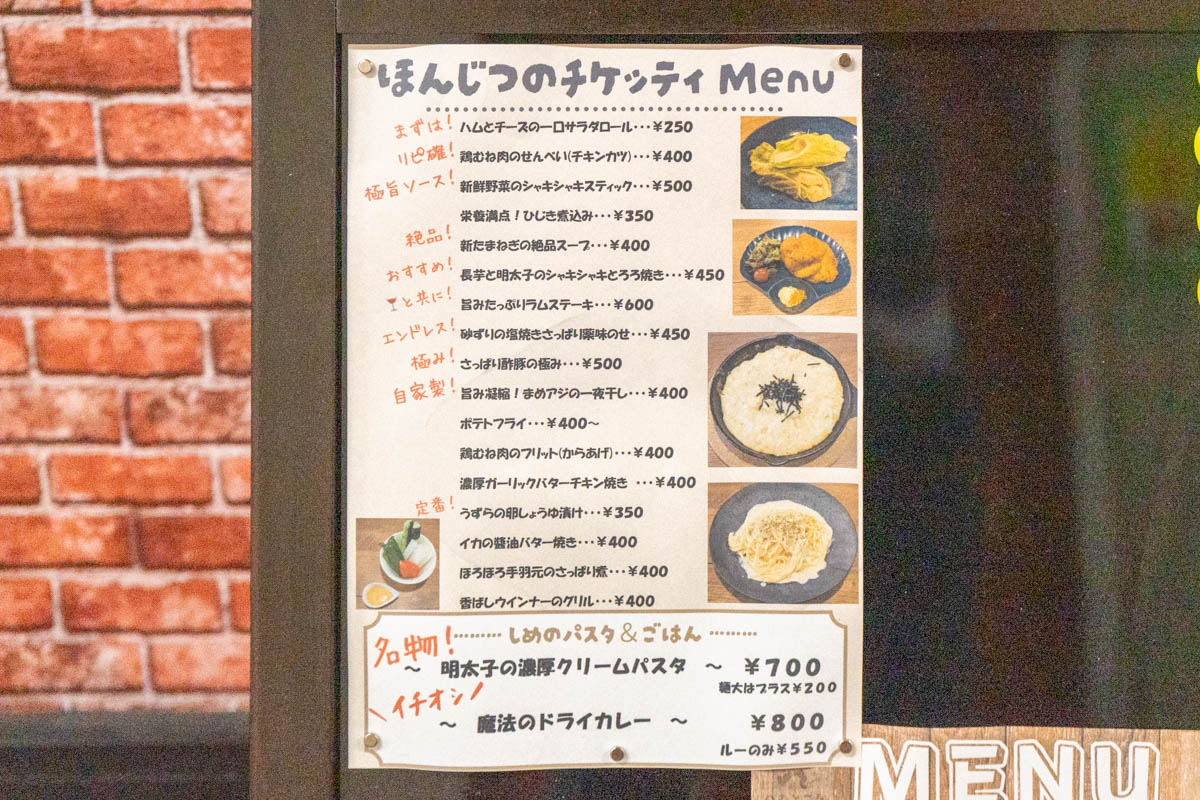 ほんじつのチケッティ Menu
まずは! ハムとチーズの一口サラダロール・・・¥250
リピ確! 鶏むね肉のせんべい(チキンカツ)・・・¥400
極旨ソース! 新鮮野菜のシャキシャキスティック・・・¥500
栄養満点!ひじき煮込み・・・¥350
絶品! 新たまねぎの絶品スープ・・・¥400
おすすめ! 長芋と明太子のシャキシャキとろろ焼き・・・¥450
🍷と共に! 旨みたっぷりラムステーキ・・・¥600
エンドレス! 砂ずりの塩焼きさっぱり薬味のせ・・・¥450
極み! さっぱり酢豚の極み・・・¥500
自家製! 旨み凝縮!まめアジの一夜干し・・・¥400
ポテトフライ・・・¥400〜
鶏むね肉のフリット(からあげ)・・・¥400
濃厚ガーリックバターチキン焼き ・・・¥400
定番! うずらの卵しょうゆ漬け・・・¥350
イカの醤油バター焼き・・・¥400
ほろほろ手羽元のさっぱり煮・・・¥400
香ばしウインナーのグリル・・・¥400
名物! ・・・・・・・・・ しめのパスタ&ごはん ・・・・・・・・・
〜 明太子の濃厚クリームパスタ 〜 ¥700
麺大はプラス¥200
\イチオシ/
〜 魔法のドライカレー 〜 ¥800
ルーのみ¥550
MENU